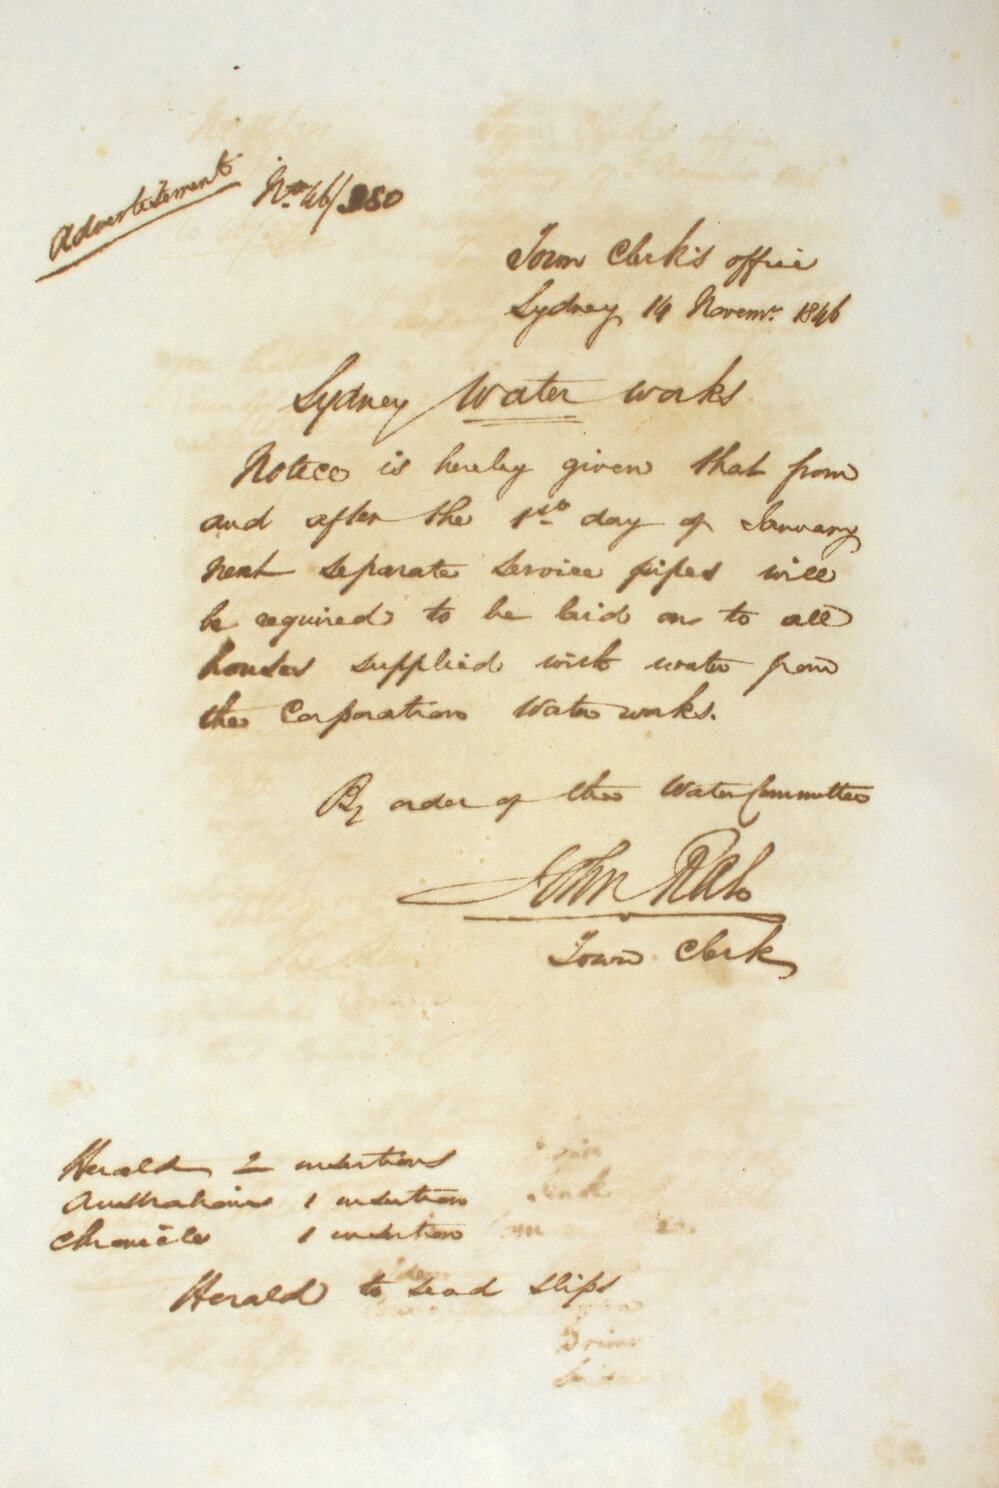 Advertisement
No. 46/380
Town Clerk's office
Sydney 14 Novemr. 1846
Sydney Water works
Notice is hereby given that from
and after the 1st day of January
next separate service pipes will
be required to be laid on to all
houses supplied with water from
the Corporation Water works.
By order of the Water Committee
John Rae
Town Clerk
Herald 2 insertions
Australian 1 insertion
Chronicle 1 insertion
Herald to send slips